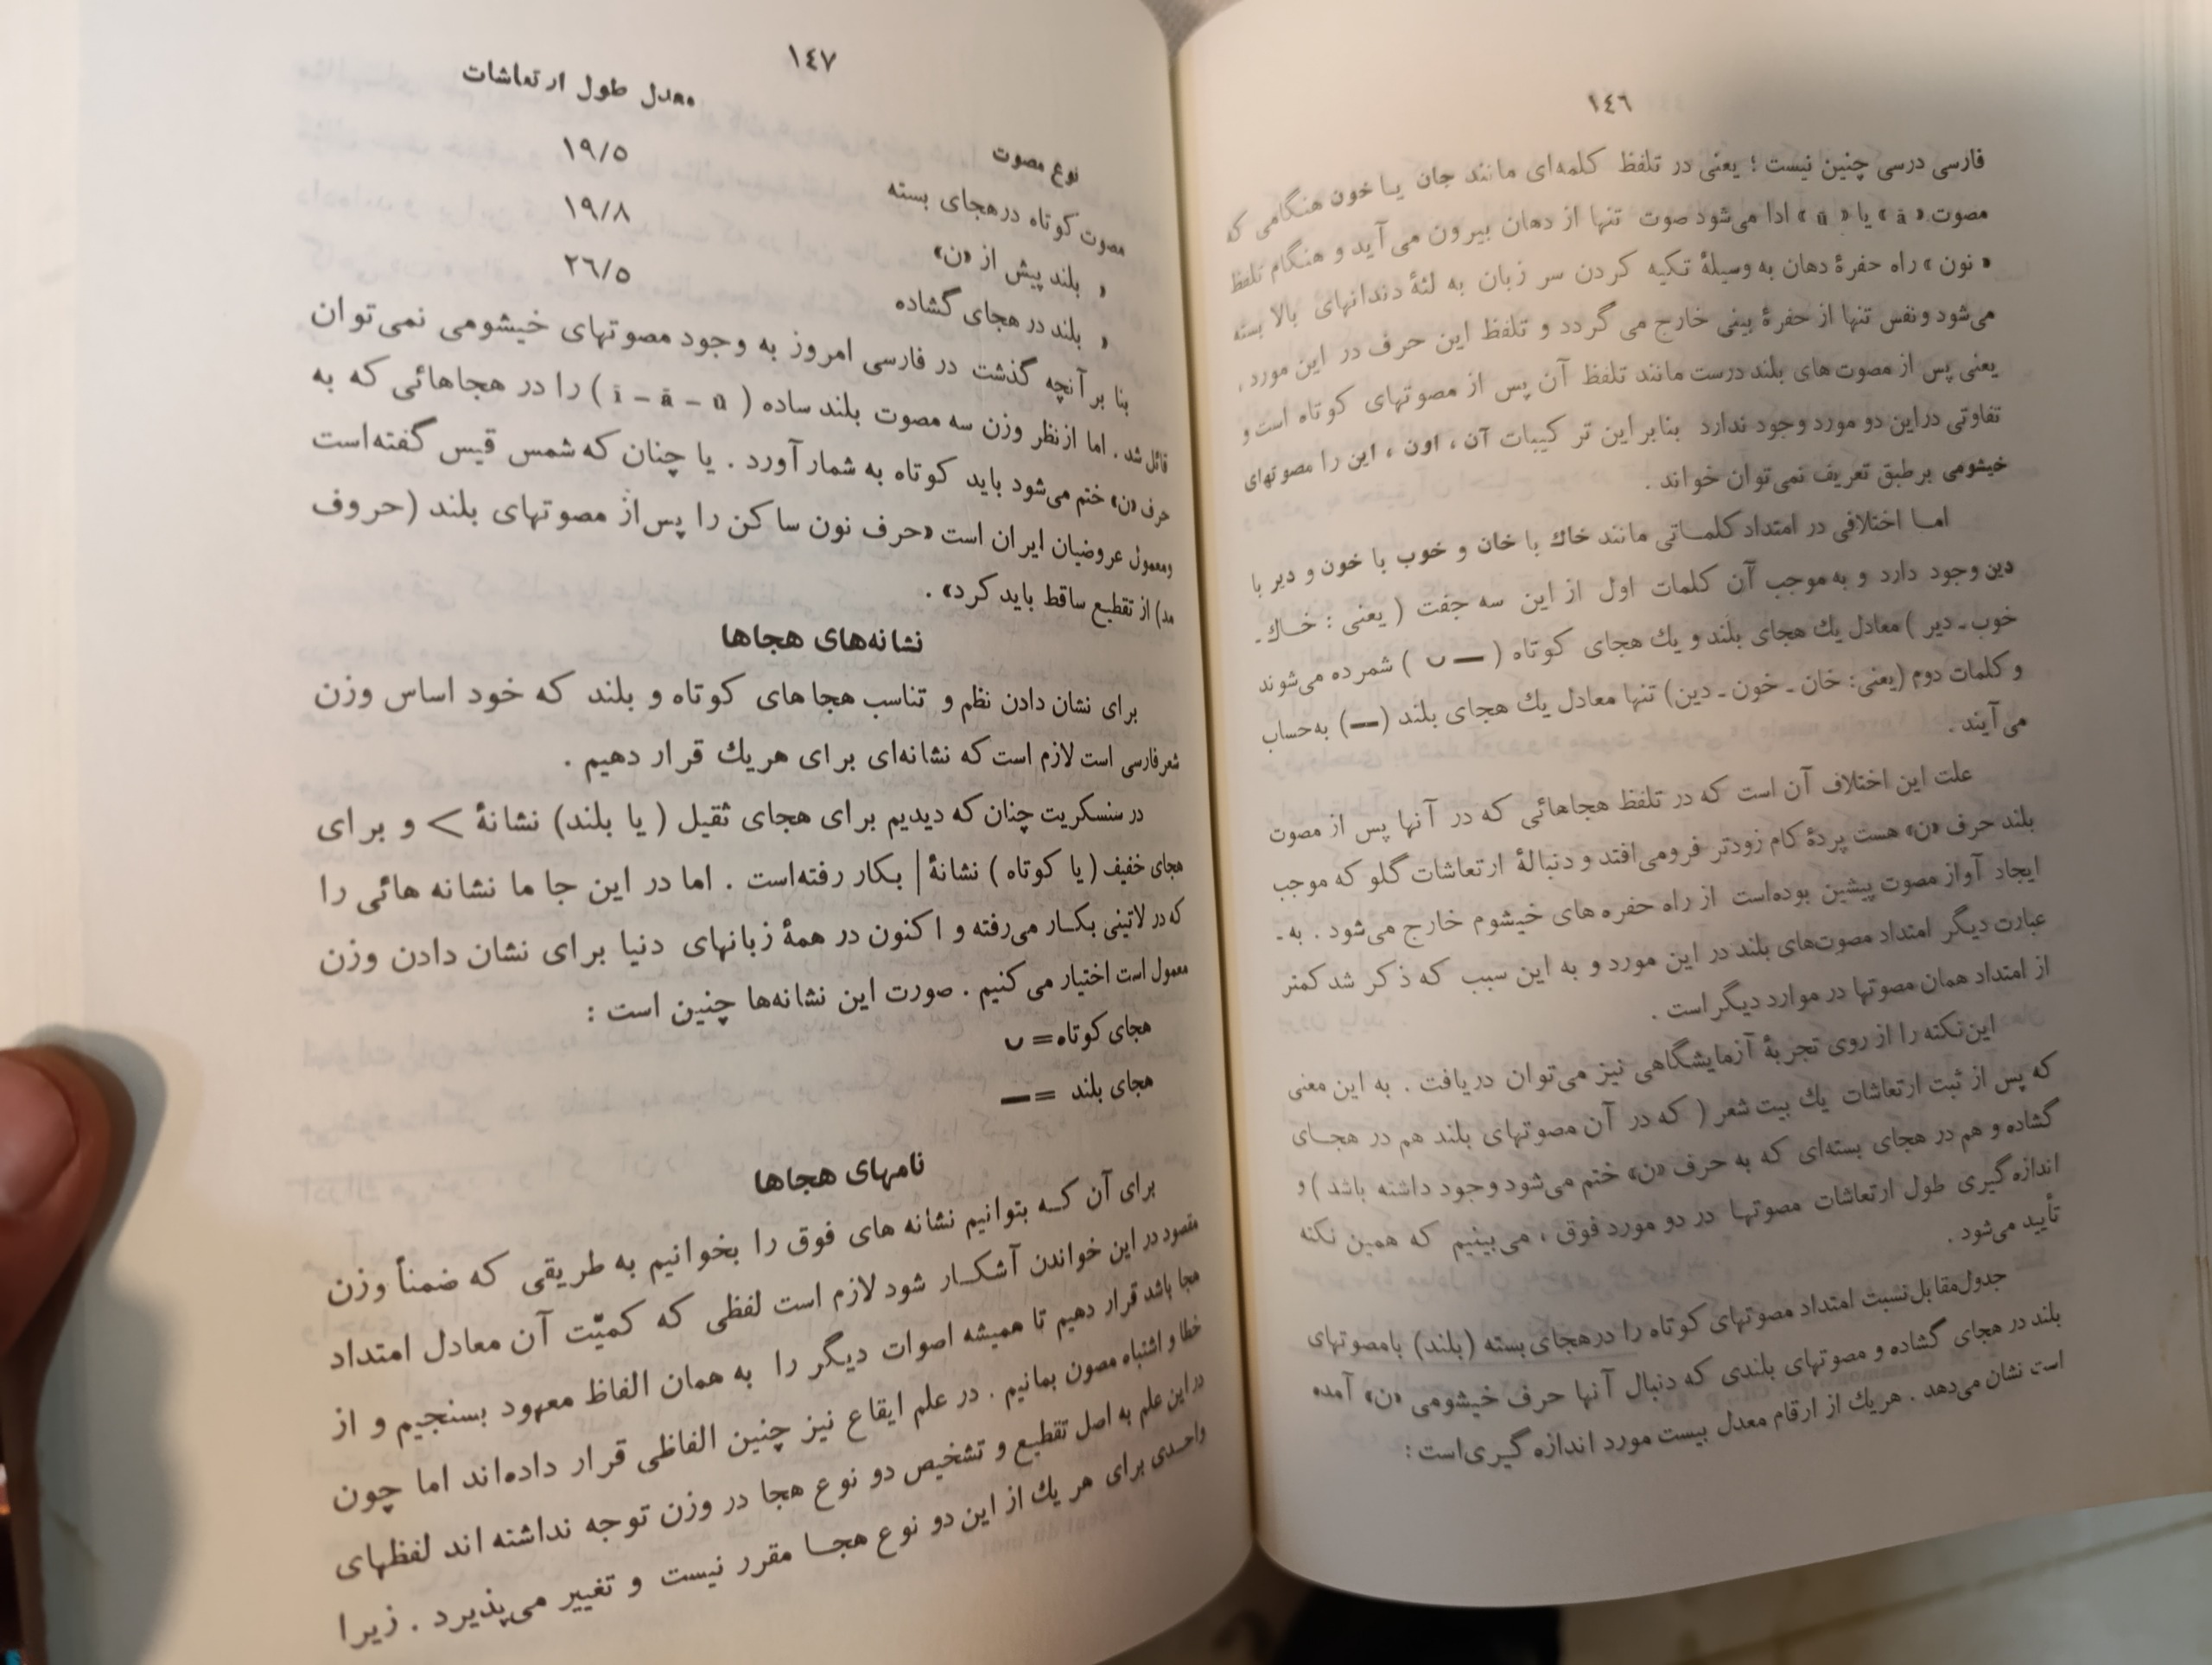 ١٤٦
فارسی درسی چنین نیست ؛ یعنی در تلفظ کلمه‌ای مانند جان یا خون هنگامی که
مصوت « ā » یا « ū » ادا می‌شود صوت تنها از دهان بیرون می‌آید و هنگام تلفظ
« نون » راه حفرهٔ دهان به وسیلهٔ تکیه کردن سر زبان به لثهٔ دندانهای بالا بسته
می‌شود ونفس تنها از حفرهٔ بینی خارج می گردد و تلفظ این حرف در این مورد ،
یعنی پس از مصوت های بلند درست مانند تلفظ آن پس از مصوتهای کوتاه است و
تفاوتی دراین دو مورد وجود ندارد بنابراین ترکیبات آن ، اون ، این را مصوتهای
خیشومی برطبق تعریف نمی‌توان خواند .
اما اختلافی در امتداد کلماتی مانند خاك با خان و خوب با خون و دیر با
دین وجود دارد و به‌موجب آن کلمات اول از این سه جفت ( یعنی : خاك ـ
خوب ـ دیر ) معادل یك هجای بلند و یك هجای کوتاه ( — ∪ ) شمرده می‌شوند
و کلمات دوم (یعنی: خان ـ خون ـ دین) تنها معادل یك هجای بلند (—) به‌حساب
می‌آیند .
علت این اختلاف آن است که در تلفظ هجاهائی که در آنها پس از مصوت
بلند حرف «ن» هست پردهٔ کام زودتر فرومی‌افتد و دنبالهٔ ارتعاشات گلو که موجب
ایجاد آواز مصوت پیشین بوده‌است از راه حفره های خیشوم خارج می‌شود . به ـ
عبارت دیگر امتداد مصوت‌های بلند در این مورد و به این سبب که ذکر شد کمتر
از امتداد همان مصوتها در موارد دیگر است .
این‌نکته را از روی تجربهٔ آزمایشگاهی نیز می‌توان دریافت . به این معنی
که پس از ثبت ارتعاشات یك بیت شعر ( که در آن مصوتهای بلند هم در هجای
گشاده و هم در هجای بسته‌ای که به حرف «ن» ختم می‌شود وجود داشته باشد ) و
اندازه‌گیری طول ارتعاشات مصوتها در دو مورد فوق ، می‌بینیم که همین نکته
تأیید می‌شود .
جدول‌مقابل‌نسبت امتداد مصوتهای کوتاه را درهجای بسته (بلند) بامصوتهای
بلند در هجای گشاده و مصوتهای بلندی که دنبال آنها حرف خیشومی «ن» آمده
است نشان می‌دهد . هریك از ارقام معدل بیست مورد اندازه گیری‌است :
١٤٧
نوع مصوت معدل طول ارتعاشات
مصوت کوتاه درهجای بسته ١٩/٥
» بلند پیش از «ن» ١٩/٨
» بلند در هجای گشاده ٢٦/٥
بنا بر آنچه گذشت در فارسی امروز به وجود مصوتهای خیشومی نمی‌توان
قائل شد . اما ازنظر وزن سه مصوت بلند ساده ( ī – ā – ū ) را در هجاهائی که به
حرف «ن» ختم می‌شود باید کوتاه به شمار آورد . یا چنان که شمس قیس گفته‌است
ومعمول عروضیان ایران است «حرف نون ساکن را پس‌از مصوتهای بلند (حروف
مد) از تقطیع ساقط باید کرد» .
نشانه‌های هجاها
برای نشان دادن نظم و تناسب هجاهای کوتاه و بلند که خود اساس وزن
شعرفارسی است لازم است که نشانه‌ای برای هریك قرار دهیم .
در سنسکریت چنان که دیدیم برای هجای ثقیل ( یا بلند) نشانهٔ > و برای
هجای خفیف ( یا کوتاه ) نشانهٔ | بکار رفته‌است . اما در این جا ما نشانه هائی را
که در لاتینی بکار می‌رفته و اکنون در همهٔ زبانهای دنیا برای نشان دادن وزن
معمول است اختیار می کنیم . صورت این نشانه‌ها چنین است :
هجای کوتاه = ∪
هجای بلند = —
نامهای هجاها
برای آن که بتوانیم نشانه های فوق را بخوانیم به طریقی که ضمناً وزن
مقصود در این خواندن آشکار شود لازم است لفظی که کمیّت آن معادل امتداد
هجا باشد قرار دهیم تا همیشه اصوات دیگر را به همان الفاظ معهود بسنجیم و از
خطا و اشتباه مصون بمانیم . در علم ایقاع نیز چنین الفاظی قرار داده‌اند اما چون
در این علم به اصل تقطیع و تشخیص دو نوع هجا در وزن توجه نداشته اند لفظهای
واحدی برای هر یك از این دو نوع هجا مقرر نیست و تغییر می‌پذیرد . زیرا